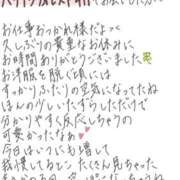 お仕事おつかれ様だよっ
久しぶりの貴重なお休みに
お時間ありがとうございました
お洋服を脱ぐ頃には
すっかりふたりの空気になってね
ほんの少しいたずらしただけで
分かりやすく反応しちゃうの
可愛かったなぁ♥
今日はいつにも増して
我慢してるとこ たくさん見ちゃった